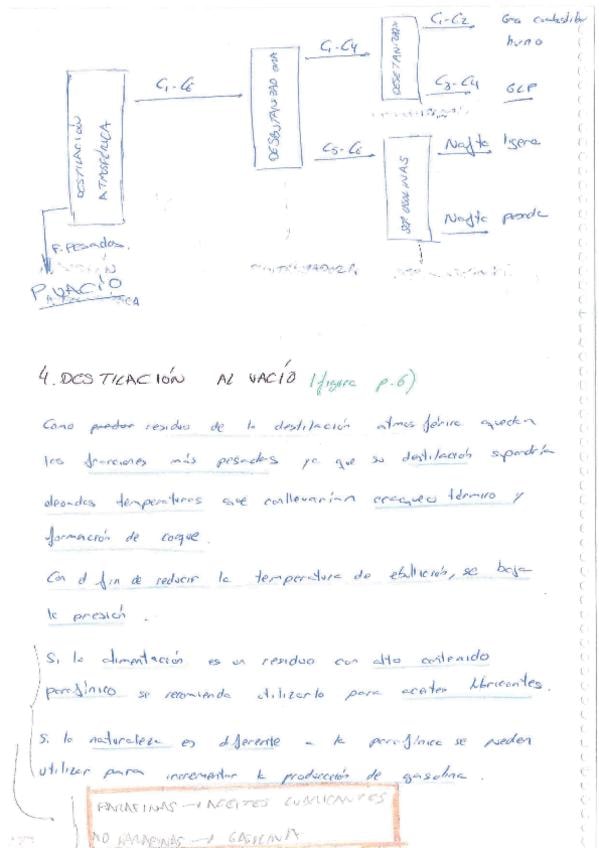 C1-C2 Gas combustible
humo
C1-C4
DESETANIZADORA
C1-C6
DESBUTANIZADORA
C3-C4 GLP
DESTILACIÓN
ATMOSFÉRICA
C5-C6
Nafta ligera
SEP GASOLINAS
Nafta pesada
F. Pesados.
P. VACÍO
4. DESTILACIÓN AL VACÍO (figura p.6)
Como residuo de la destilación atmosférica quedan
las fracciones más pesadas ya que su destilación supondría
elevadas temperaturas que conllevarían craqueo térmico y
formación de coque.
Con el fin de reducir la temperatura de ebullición, se baja
la presión.
Si la alimentación es un residuo con alto contenido
parafínico se recomienda utilizarlo para aceites lubricantes.
Si la naturaleza es diferente a la parafínica se pueden
utilizar para incrementar la producción de gasolina.
PARAFINAS → ACEITES LUBRICANTES
NO PARAFINAS → GASOLINA